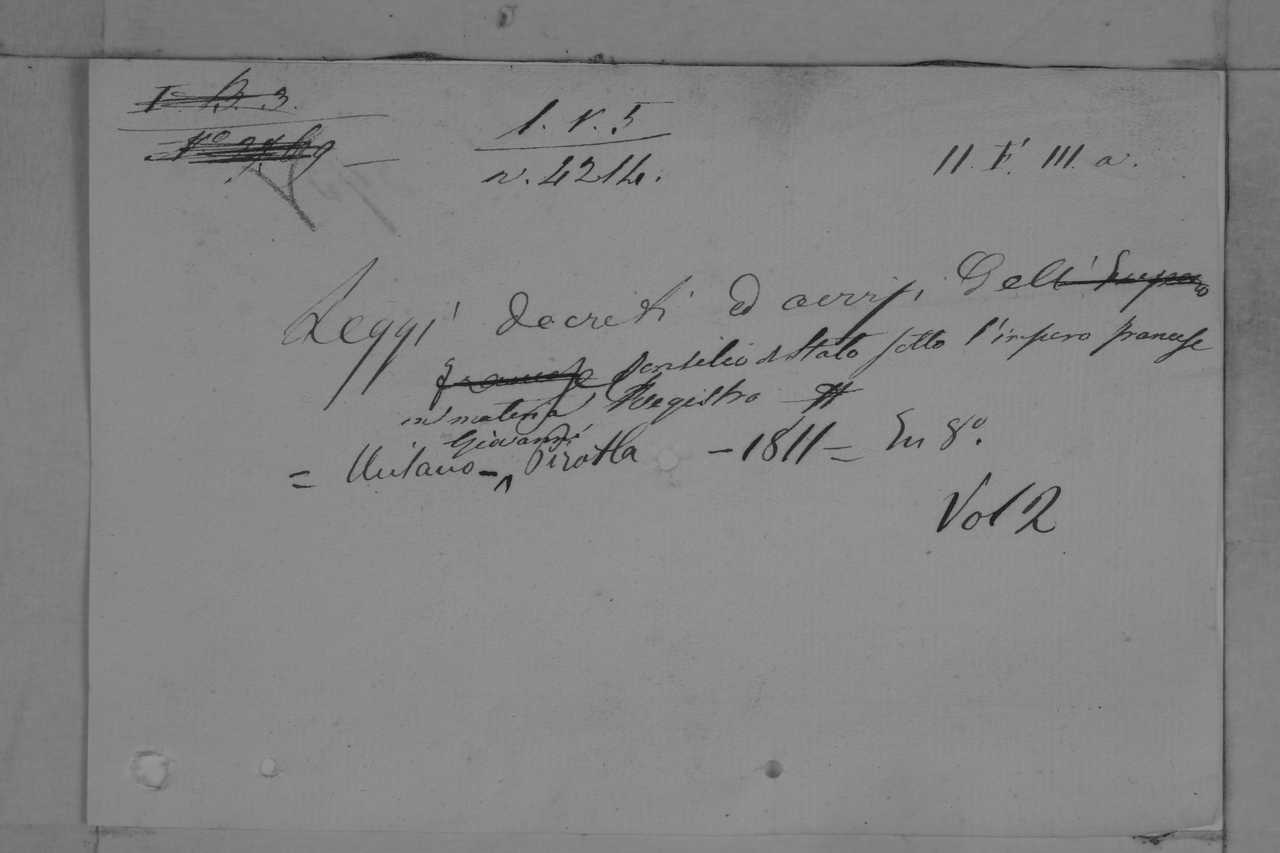 I. B. 3.
l. v. 5
n. 4214.
II. F. III. a.
Leggi decreti ed avvisi Dell' Impero
Francese Consilio di Stato sotto l'impero francese
in materia Registro #
Giovanni
= Milano - Pirotta - 1811 = In 8º.
Vol 2